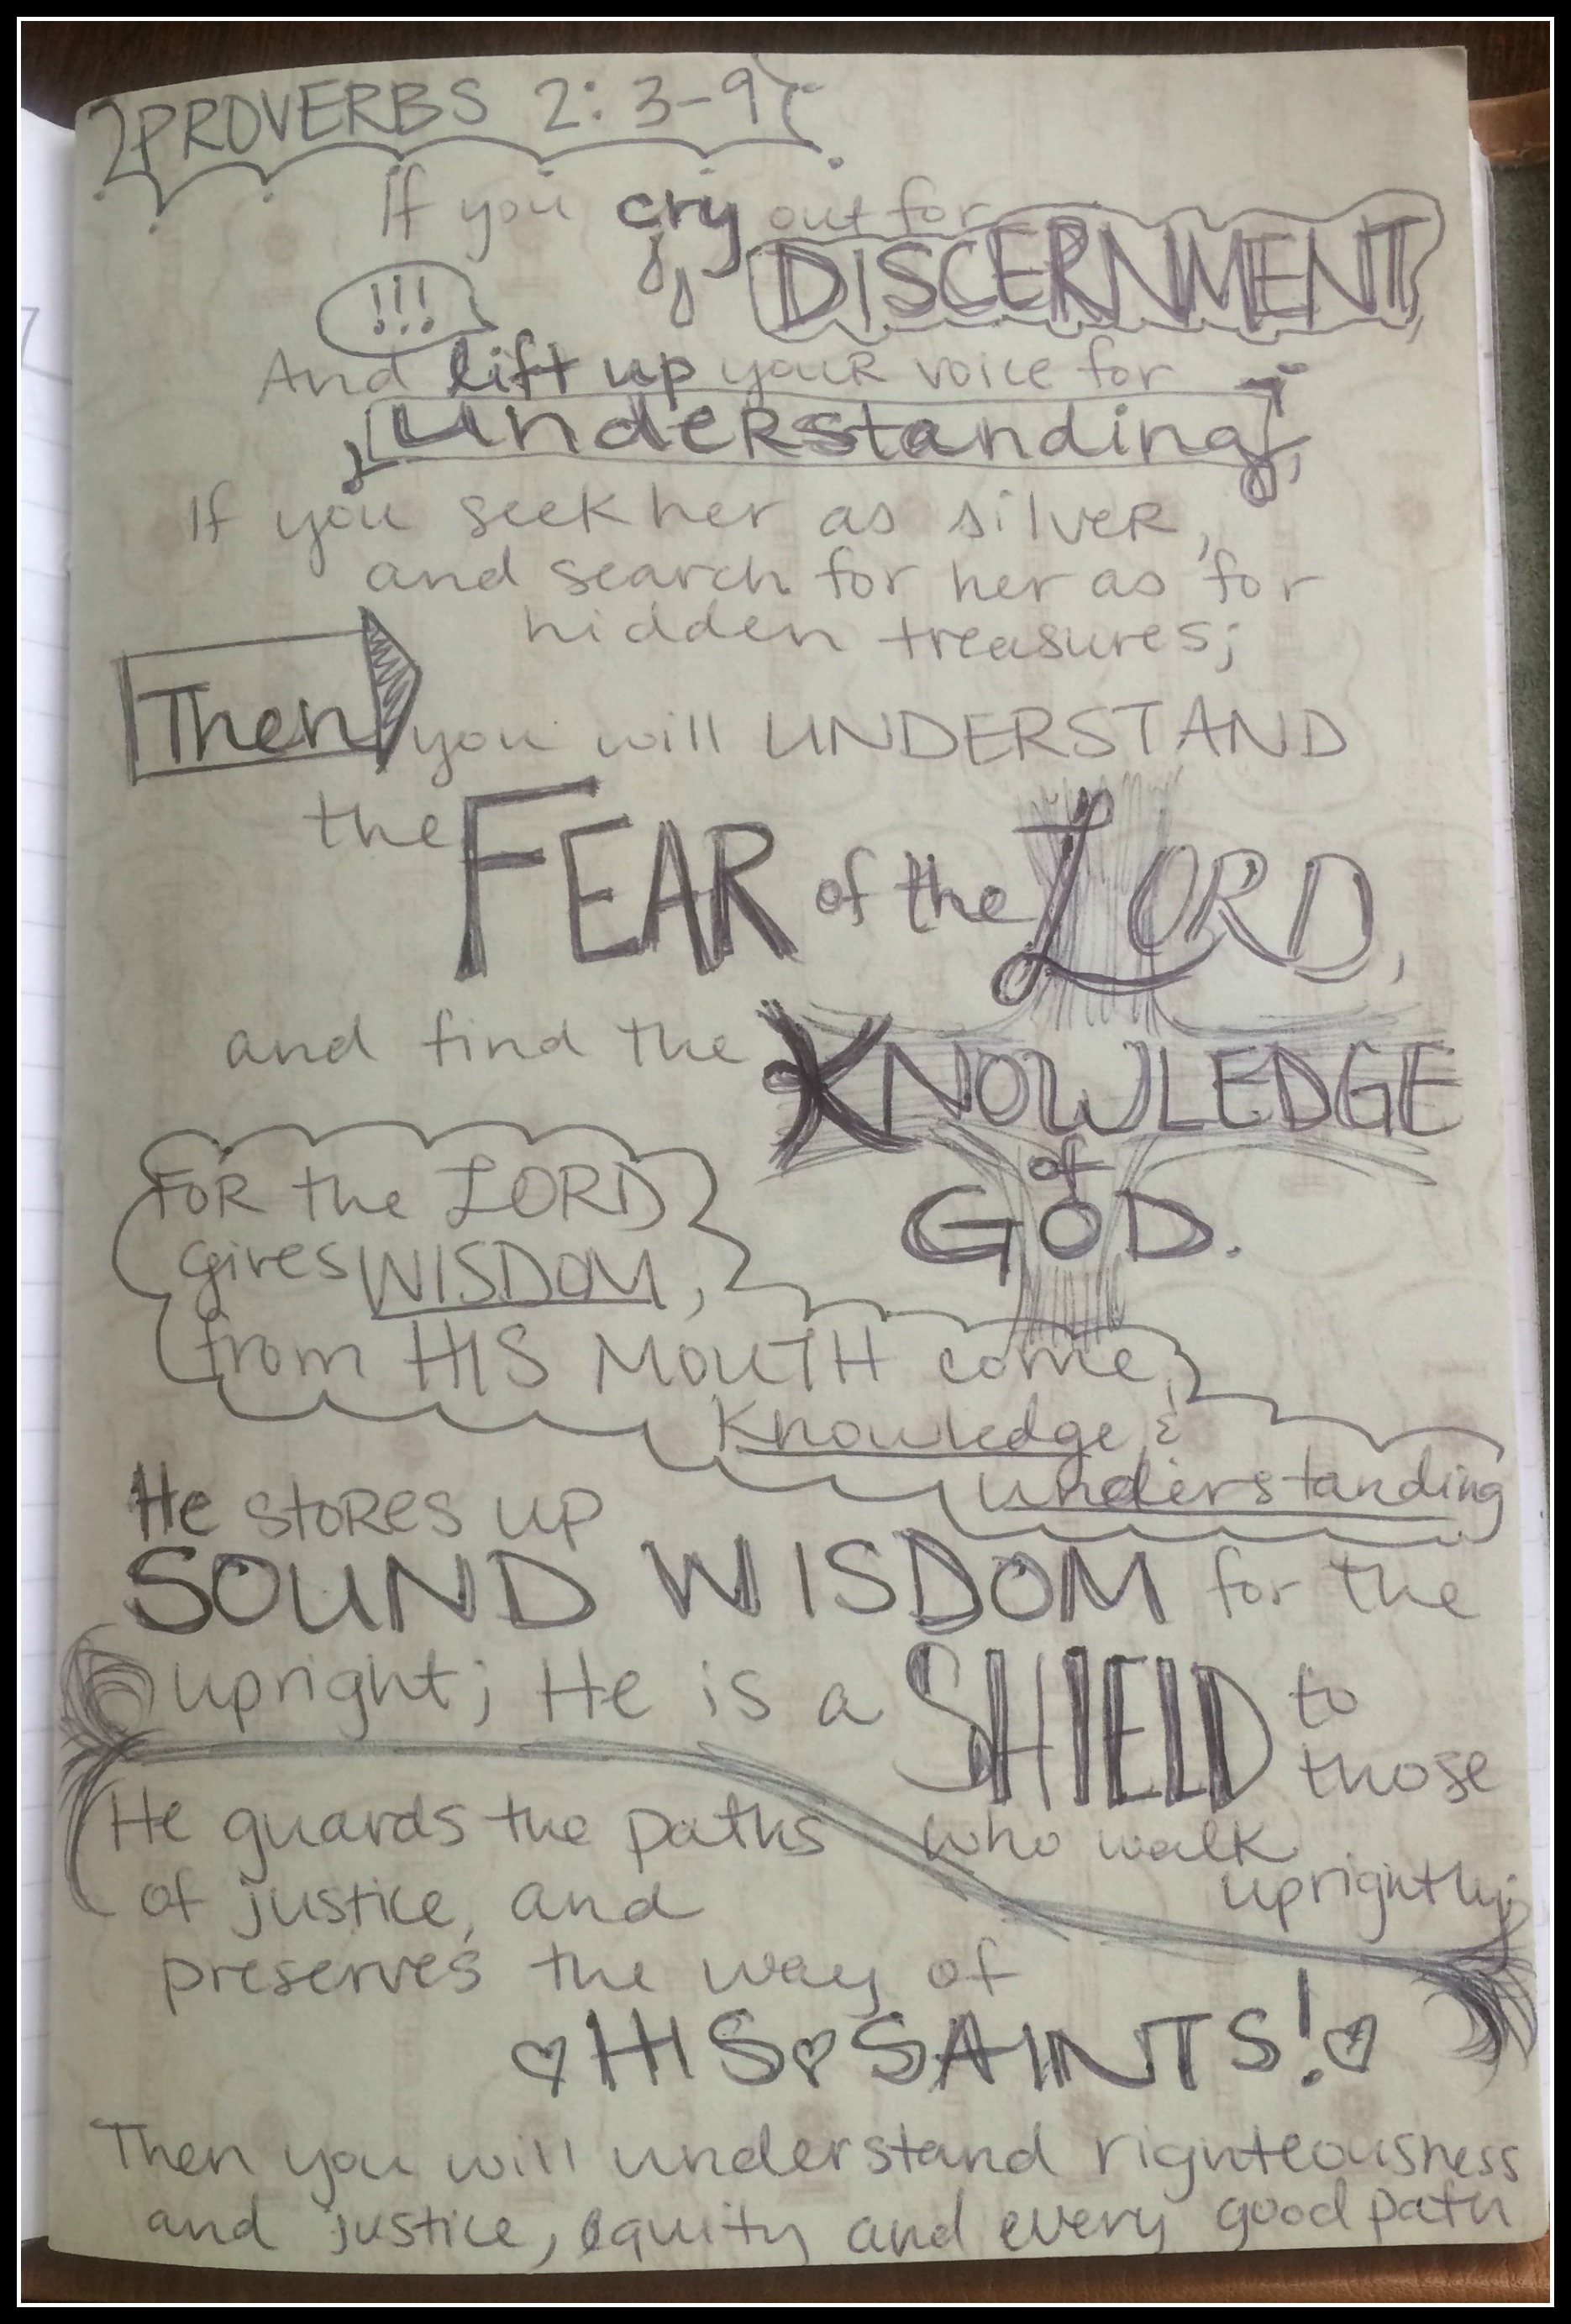 PROVERBS 2:3-9
If you cry out for
DISCERNMENT,
!!!
And lift up your voice for
understanding,
If you seek her as silver,
and search for her as for
hidden treasures;
Then you will UNDERSTAND
the FEAR of the LORD,
and find the KNOWLEDGE
of
GOD.
FOR the LORD
gives WISDOM,
from HIS MOUTH come
Knowledge &
understanding
He stores up
SOUND WISDOM for the
upright; He is a SHIELD to
those
who walk
uprightly;
He guards the paths
of justice, and
preserves the way of
HIS SAINTS!
Then you will understand righteousness
and justice, equity and every good path